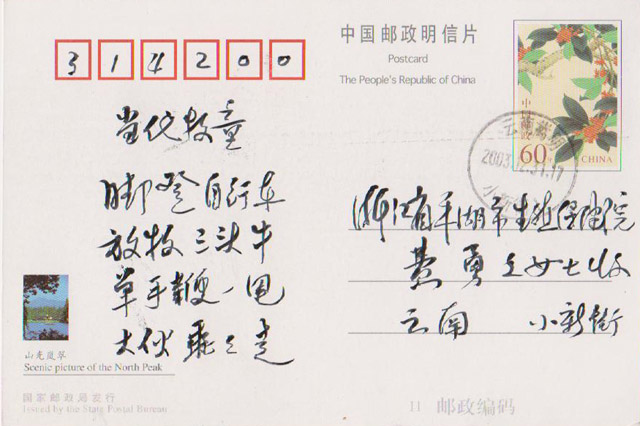 314200
中国邮政明信片
Postcard
The People's Republic of China
中国邮政
60分
CHINA
云南
2003.12.31.17
当代牧童
脚登自行车
放牧三头牛
单手鞭一甩
大伙乖乖走
浙江省平湖市生殖保健院
费勇 女士收
云南 小新街
Scenic picture of the North Peak
国家邮政局发行
Issued by the State Postal Bureau
邮政编码